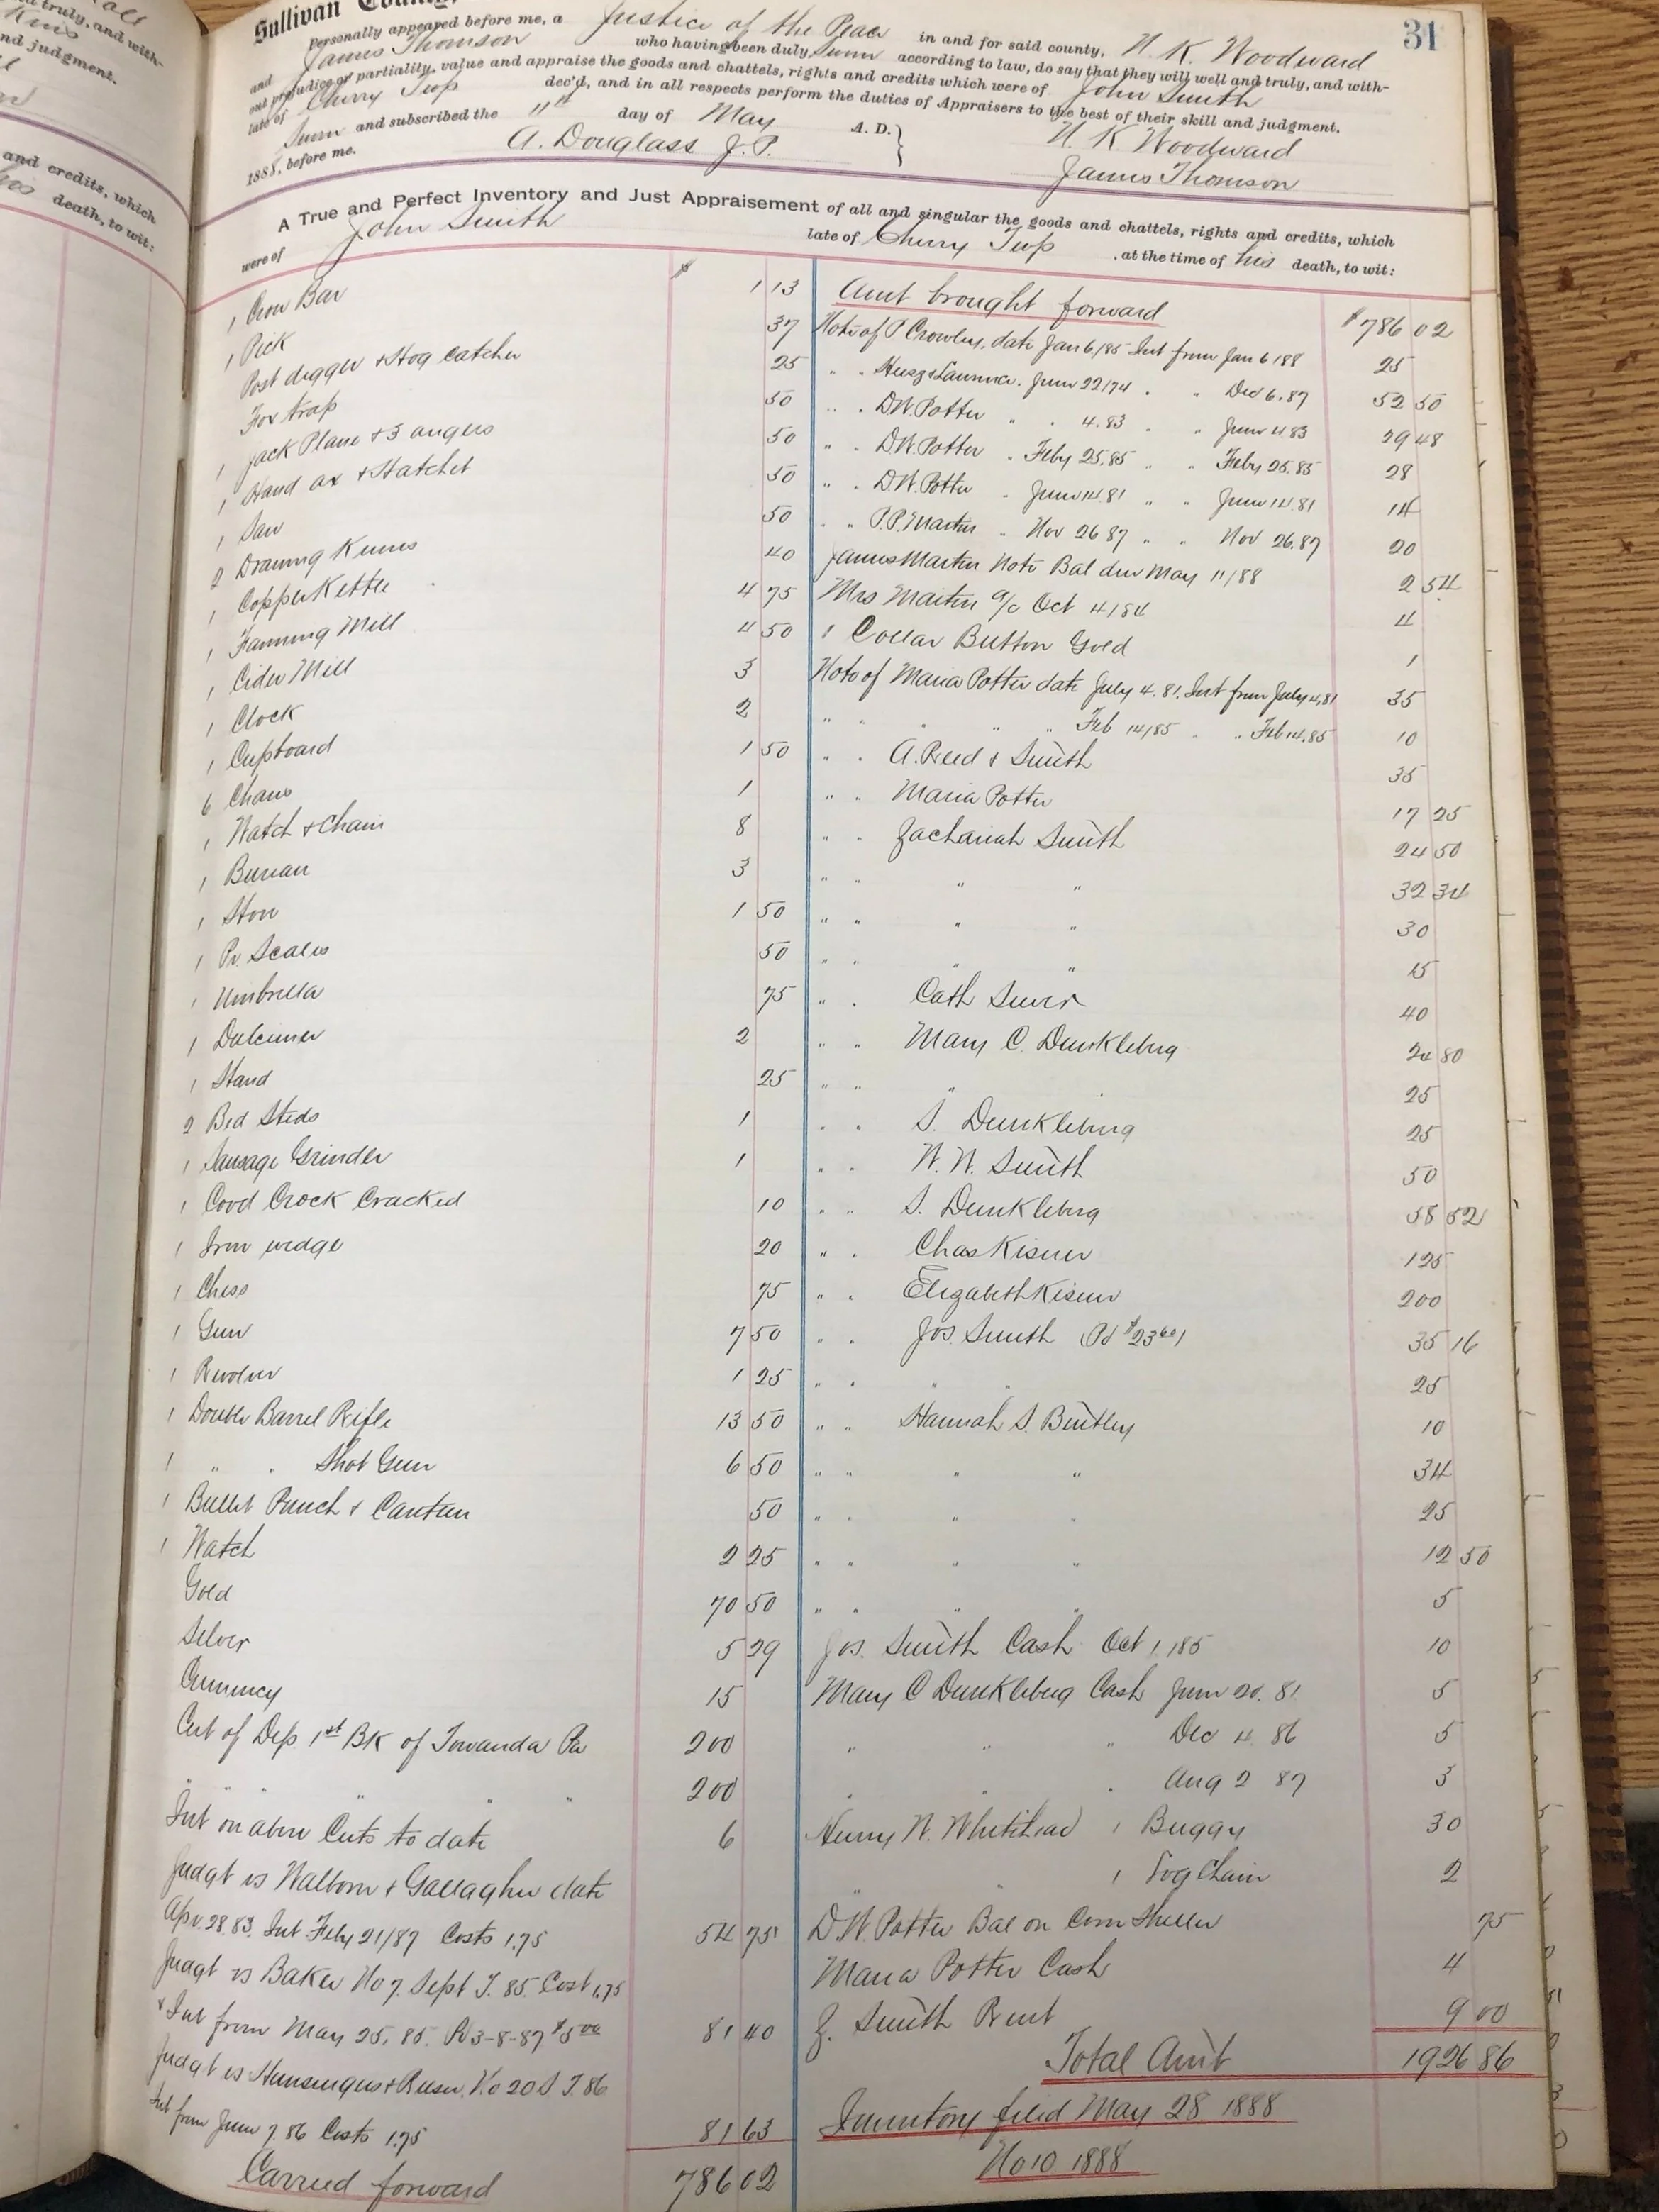 all
truly, and with-
and judgment.
and credits, which
death, to wit:
31
Sullivan County,
Personally appeared before me, a Justice of the Peace in and for said county, N. K. Woodward
and James Thomson who having been duly Sworn according to law, do say that they will well and truly, and with-
out prejudice or partiality, value and appraise the goods and chattels, rights and credits which were of John Smith
late of Cherry Twp dec'd, and in all respects perform the duties of Appraisers to the best of their skill and judgment.
Sworn and subscribed the 11th day of May A. D. }
1888, before me. A. Douglass J. P.
N. K. Woodward
James Thomson
A True and Perfect Inventory and Just Appraisement of all and singular the goods and chattels, rights and credits, which
were of John Smith late of Cherry Twp , at the time of his death, to wit:
1 Crow Bar $ 1 13
1 Pick 37
Post digger & Hog catcher 25
Fox trap 50
1 Jack Plane & 3 augers 50
1 Hand ax & Hatchet 50
1 Saw 50
2 Drawing Knives 40
1 Copper Kettle 4 75
1 Fanning Mill 4 50
1 Cider Mill 3
1 Clock 2
1 Cupboard 1 50
6 Chairs 1
1 Watch & Chain 8
1 Bureau 3
1 Stove 1 50
1 Pr. Scales 50
1 Umbrella 75
1 Dulcimer 2
1 Stand 25
2 Bed Steds 1
1 Sausage Grinder 1
1 Crock Cracked 10
1 Iron wedge 20
1 Chess 75
1 Gun 7 50
1 Revolver 1 25
1 Double Barrel Rifle 13 50
1 " " Shot Gun 6 50
1 Bullet Punch & Canteen 50
1 Watch 2 25
Gold 70 50
Silver 5 29
Currency 15
Cert of Dep. 1st BK of Towanda Pa 200
" " " " " 200
Int on above Certs to date 6
Judgt vs Walborn & Gallagher date
Apr. 28 83, Int Feby 21/87 Costs 1.75 54 75
Judgt vs Baker No 7. Sept T. 85. Cost 1.75
& Int from May 25, 85. Pd 3-8-87 $5 00 81 40
Judgt vs Hunsinger & Reeser. No 20 S T 86
Int from June 7. 86 Costs 1.75 81 63
Carried forward 786 02
Amt brought forward $786 02
Note of P Crowley, date Jan 6, 185 Int from Jan 6 188 25
" " Lawrence. June 22/74 " " Dec 6. 87 52 50
" " D.W. Potter " " 4. 83 " " June 4 83 29 48
" " D.W. Potter " Feby 25. 85 " " Feby 25. 85 28
" " D.W. Potter " June 14. 81 " " June 14. 81 14
" " P.P. Martin " Nov 26 87 " " Nov 26. 87 20
James Martin Note Bal due May 11/88 2 54
Mrs Martin a/c Oct 4/84 4
1 Collar Button Gold 1
Note of Maria Potter date July 4. 81. Int from July 4, 81 35
" " " " " Feb 14/85 " " Feb 14. 85 10
" " A. Reed & Smith 35
" " Maria Potter 17 25
" " Zachariah Smith 24 50
" " " " 32 34
" " " " 30
" " " " 15
" " Cath 40
" " Mary C. Dunkleberg 24 80
" " " 25
" " S. Dunkleberg 25
" " W. W. Smith 50
" " S. Dunkleberg 58 52
" " Chas Kisner 125
" " Elizabeth Kisner 200
" " Jos. Smith Pd $23 60 35 16
" " " " 25
" " Hannah S. Bentley 10
" " " " 34
" " " " 25
" " " " 12 50
" " " " 5
Jos. Smith Cash Oct 1, 185 10
Mary C Dunkleberg Cash June 20. 81. 5
" " " Dec 4. 86 5
" " " Aug 2 87 3
Henry W. Whitehead 1 Buggy 30
" " 1 Log Chain 2
D. W. Potter Bal on Corn Sheller 75
Maria Potter Cash 4
Z. Smith Rent 9 00
Total Amt 1926 86
Inventory filed May 28 1888
No 10 1888